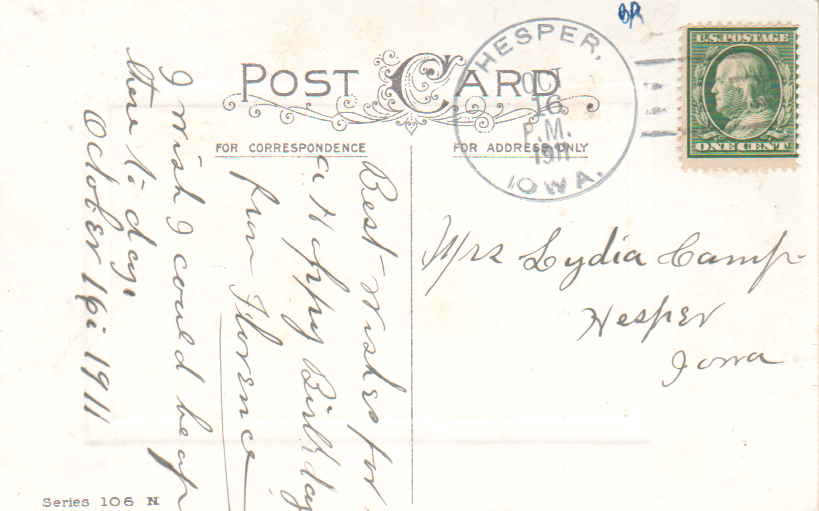 BR
HESPER,
OCT
16
P.M.
1911
IOWA.
U.S. POSTAGE
ONE CENT
POST CARD
FOR CORRESPONDENCE
FOR ADDRESS ONLY
Best Wishes for
a Happy Birthday
from Florence
I wish I could be up
there to day.
October 16 1911
Mrs Lydia Camp
Hesper
Iowa
Series 106 N